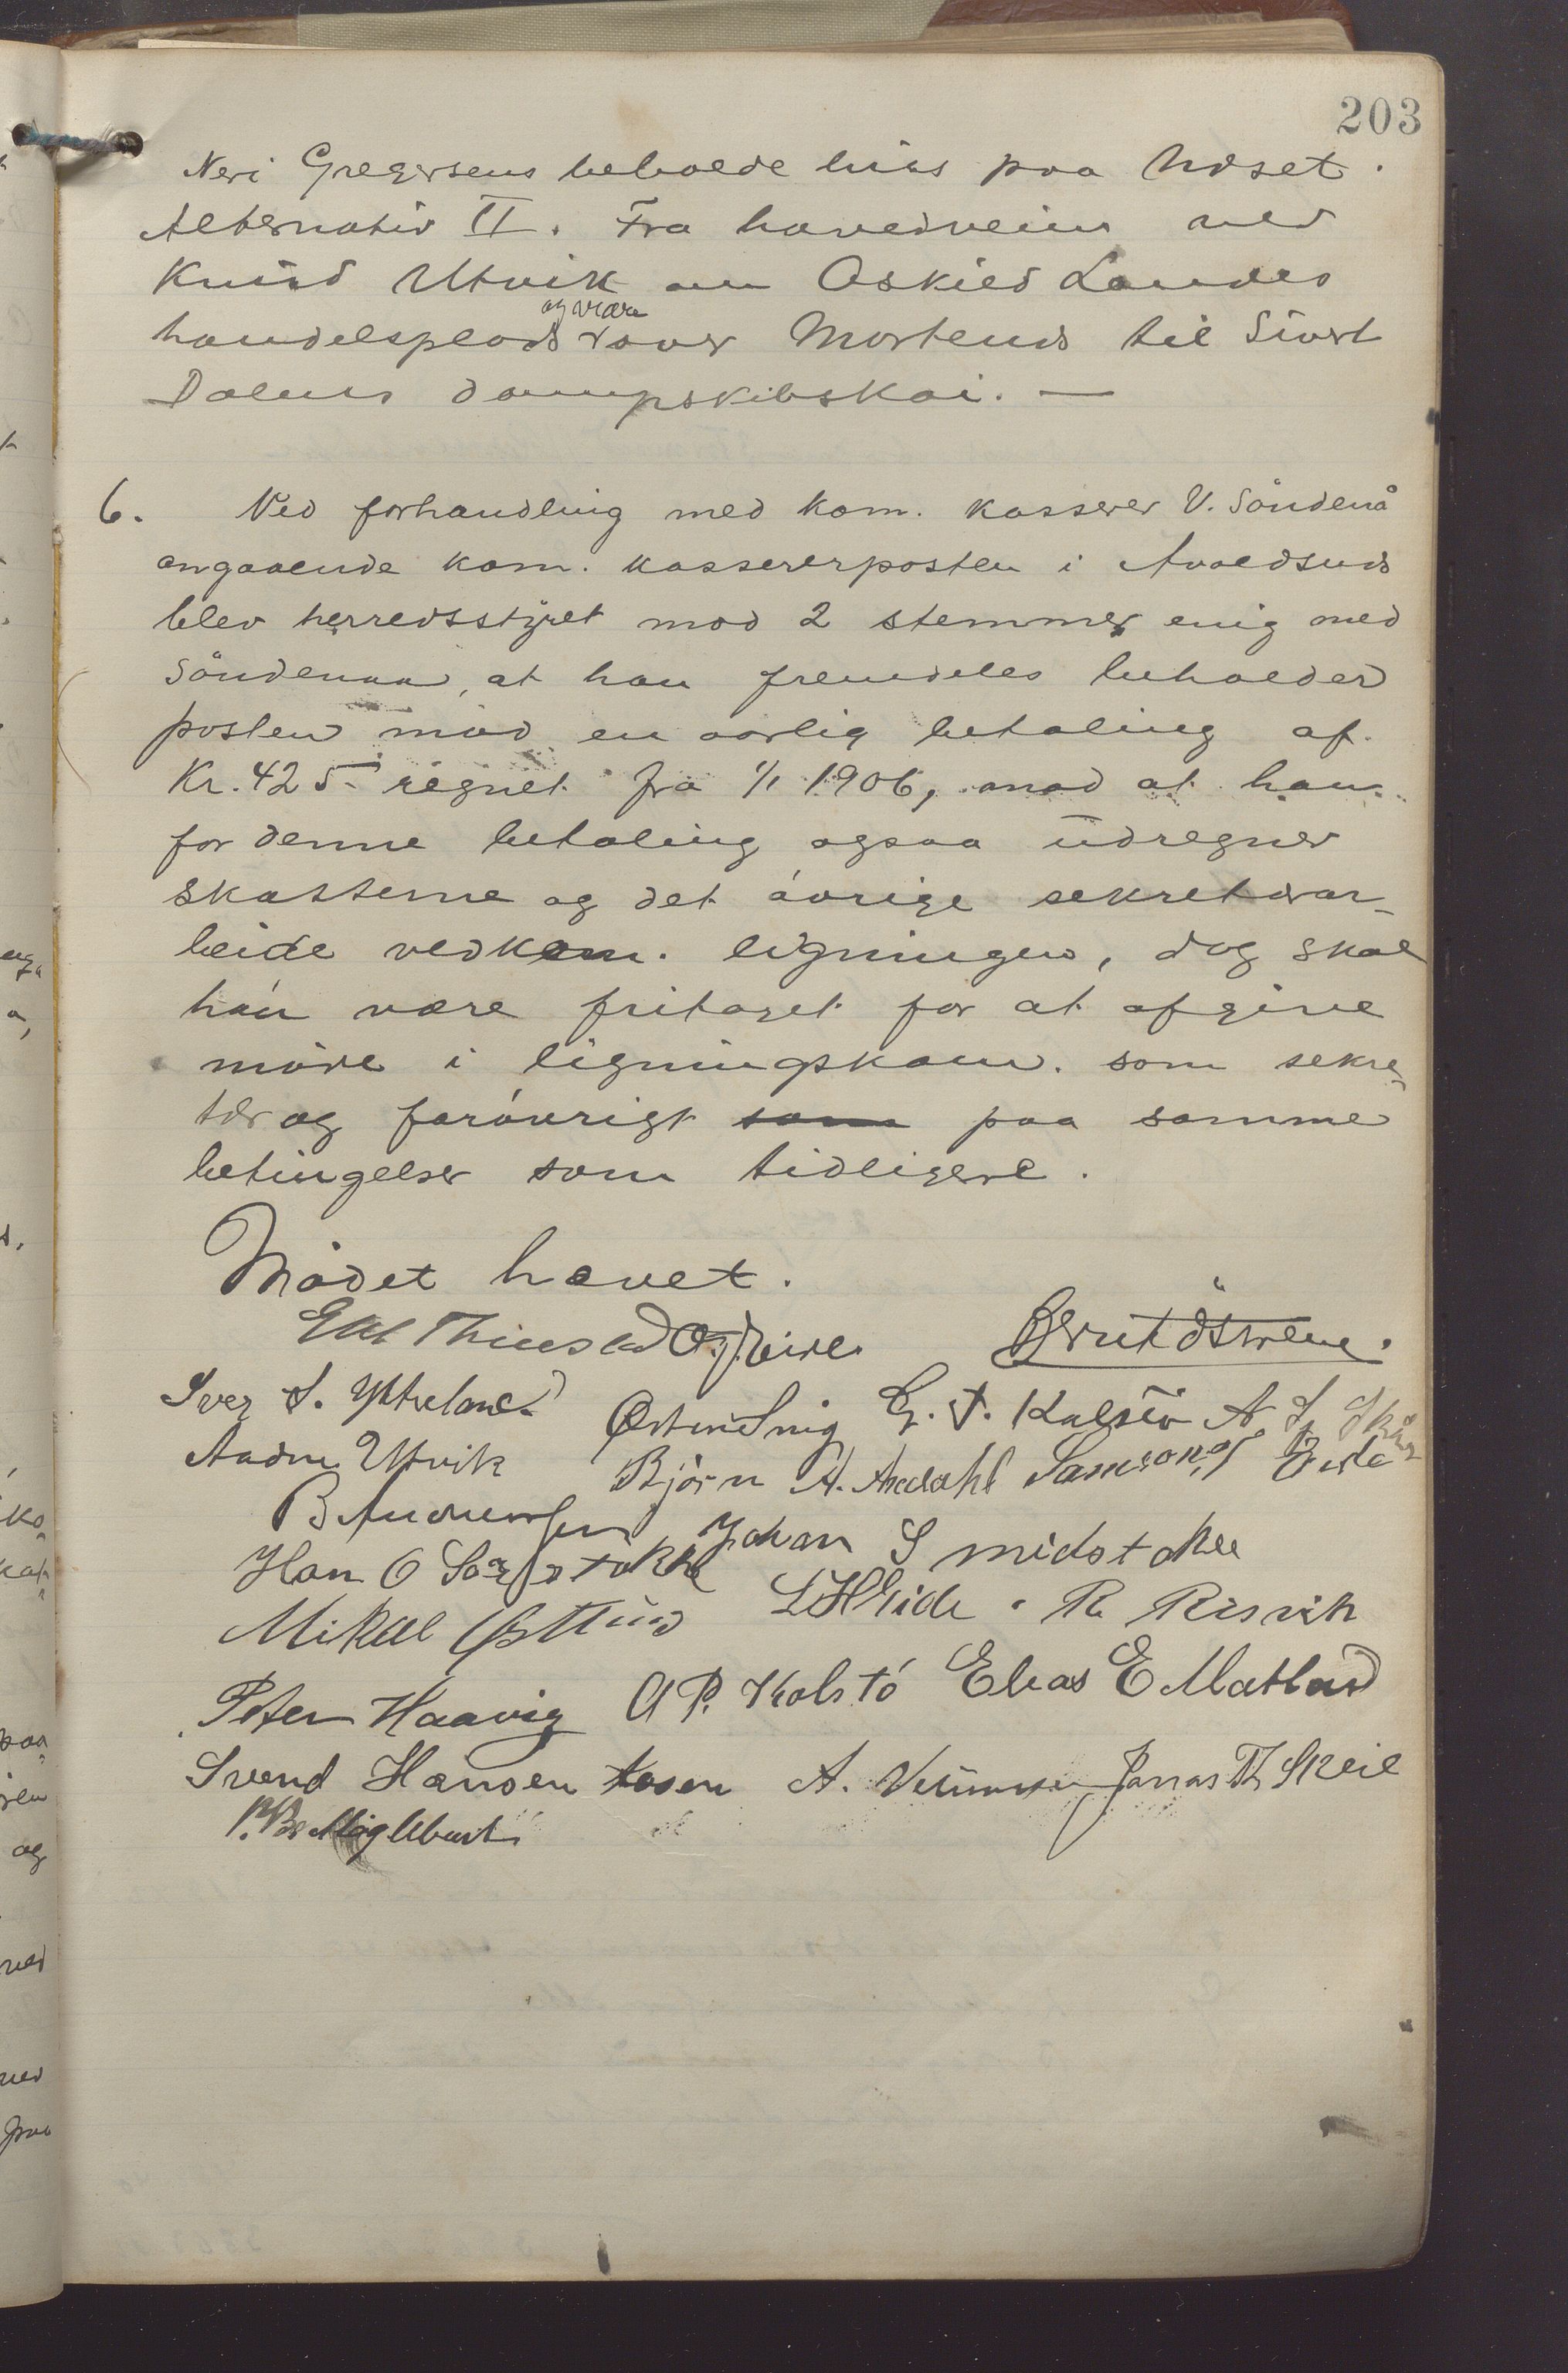 203
Neri Gregersens beboede hus paa Næset.
Alternativ II. Fra hovedveien ved
Knud Utvik om Oskild Landes
og videre
handelsplads over Mortens til Sivert
Dalens dampskibskai. —
6. Ved forhandling med kom. kasserer V. Söndenå
angaaende kom. kassererposten i Avaldsund
blev herredsstyret mod 2 stemmer enig med
Söndenaa, at han fremdeles beholder
posten mod en aarlig betaling af
Kr. 425 - regnet fra 1/1 1906, mod at han
for denne betaling ogsaa udregner
skatterne og det øvrige sekretærar-
beide vedkom. ligningen, dog skal
han være fritaget for at afgive
møde i ligningskom. som sekre-
tær og forøvrigt som paa samme
betingelser som tidligere.
Mødet hævet.
O. J. Eide. Bernt Östrem.
Iver S. Ytreland Østen Snig G. T. Kalstø A. L. Skår
Aadne Utvik Björn A. Aadahl Samson Eide
B Andreassen
Johan S midstokke
Han O Sörstokke
Mikal Østhus L H Eide. R. Risvik
Peter Haavig A P. Kolstó Elias E Matland
Svend Hansen Aasen A. Jonas Th Skeie